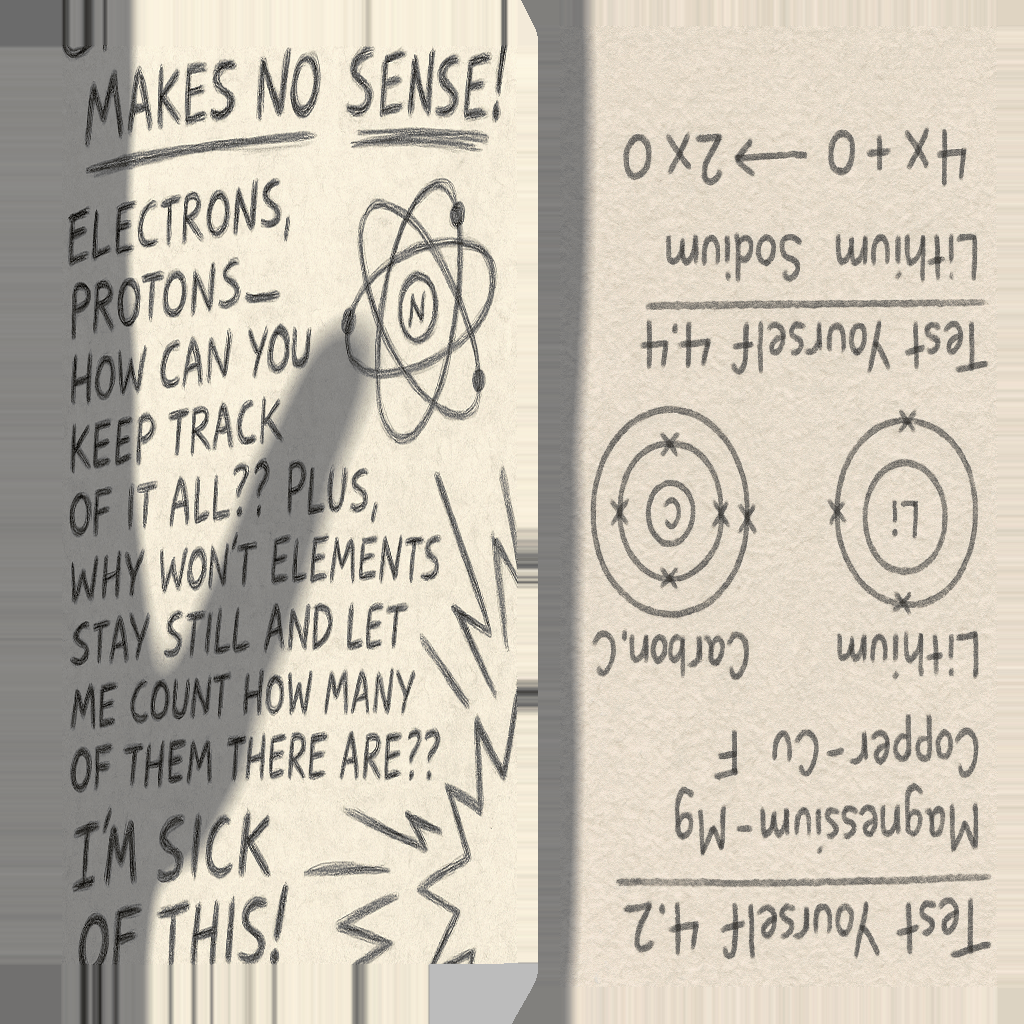 MAKES NO SENSE!
ELECTRONS,
PROTONS—
HOW CAN YOU
KEEP TRACK
OF IT ALL?? PLUS,
WHY WON'T ELEMENTS
STAY STILL AND LET
ME COUNT HOW MANY
OF THEM THERE ARE??
I'M SICK
OF THIS!
N
Test Yourself 4.2
Magnessium-Mg
Copper-Cu F
Lithium Carbon,C
Li C
Test Yourself 4.4
Lithium Sodium
4x + O → 2x O